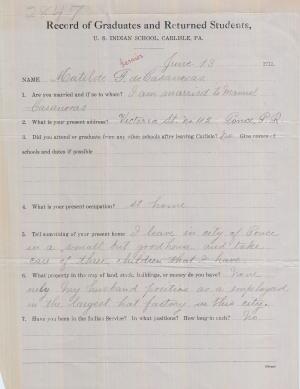 2447
Record of Graduates and Returned Students,
U. S. INDIAN SCHOOL, CARLISLE, PA.
June 13 1911
NAME Matilde G. de Casanovas
1. Are you married and if so to whom? I am married to Manuel
Casanovas
2. What is your present address? Victoria St. No 112 Ponce, P.R.
3. Did you attend or graduate from any other schools after leaving Carlisle? No Give names of
schools and dates if possible
4. What is your present occupation? At home
5. Tell something of your present home I leave in city of Ponce
in a small but good house and take
care of three children that I have.
6. What property in the way of land, stock, buildings, or money do you have? None
only my husband position as a employed
in the largest hat factory in this city.
7. Have you been in the Indian Service? In what positions? How long in each? No